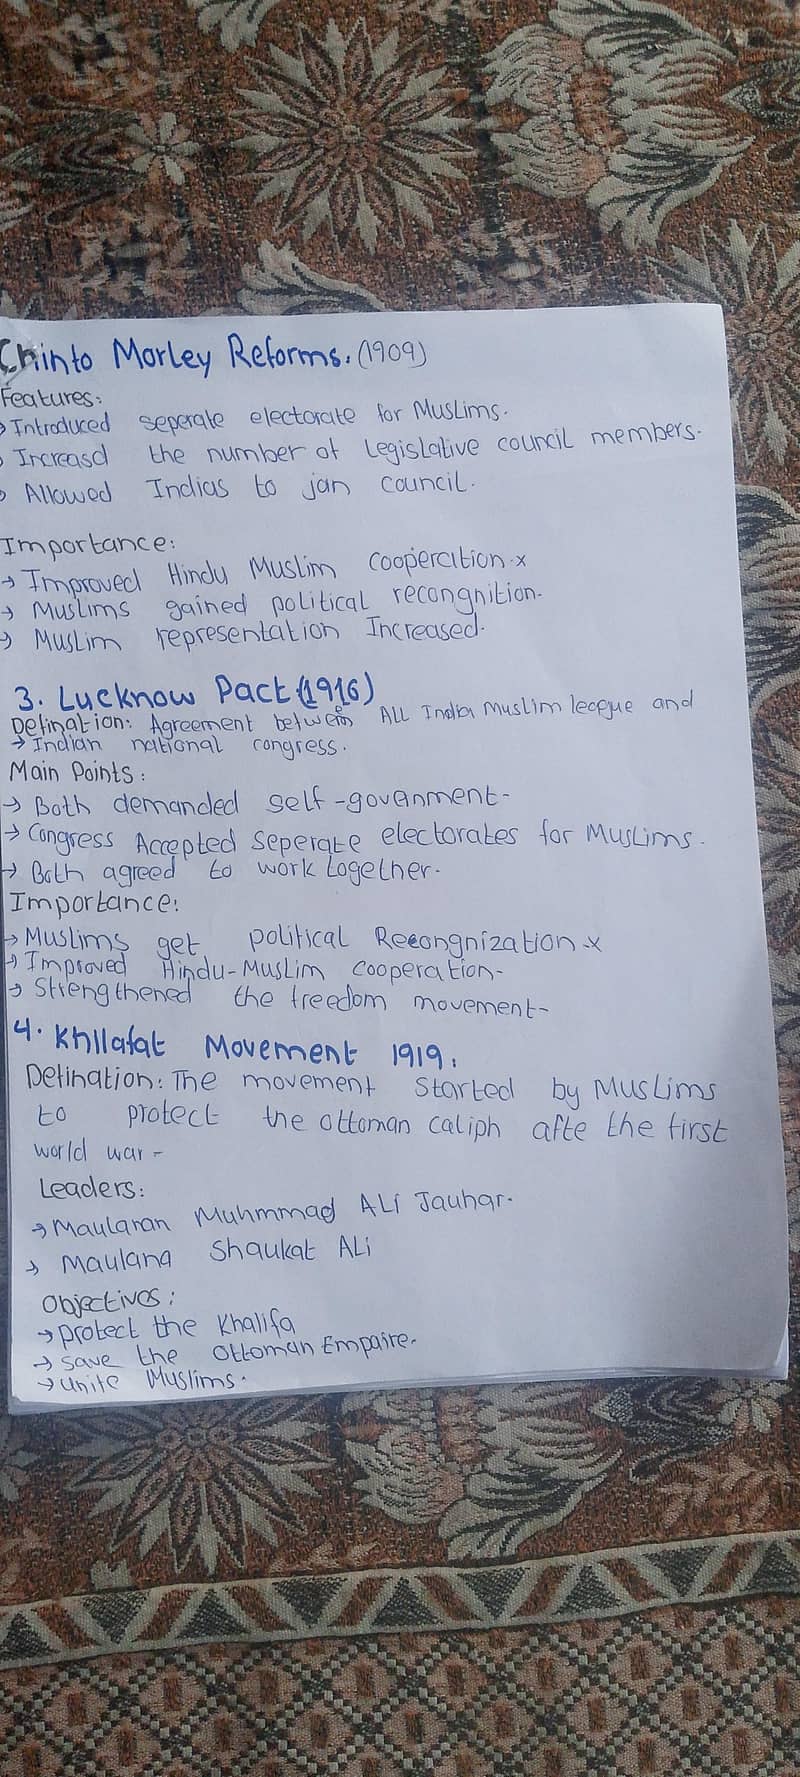 Chinto Morley Reforms. (1909)
Features:
→ Introduced seperate electorate for Muslims.
→ Increasd the number of Legislative council members.
→ Allowed Indias to jan council.
Importance:
→ Improved Hindu Muslim Cooperation x
→ Muslims gained political recongnition.
→ Muslim representation Increased.
3. Lucknow Pact (1916)
Defination: Agreement between All India Muslim league and
→ Indian national congress.
Main Points:
→ Both demanded self-govenment-
→ Congress Accepted seperate electorates for Muslims.
→ Both agreed to work together.
Importance:
→ Muslims get political Recongnization x
→ Improved Hindu-Muslim cooperation-
→ Strengthened the freedom movement-
4. Khilafat Movement 1919.
Defination: The movement started by Muslims
to protect the ottoman caliph afte the first
world war-
Leaders:
→ Maulanan Muhmmad ALi Jauhar.
→ Maulana Shaukat ALi
Objectives:
→ protect the Khalifa
→ save the Ottoman Empaire.
→ unite Muslims.